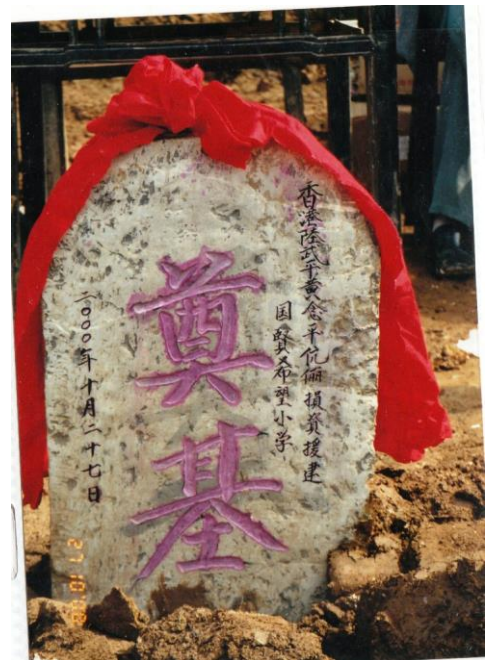 香港陸武平黄念平伉俪捐資援建
国賢希望小学
奠基
二〇〇〇年十月二十七日
27 10